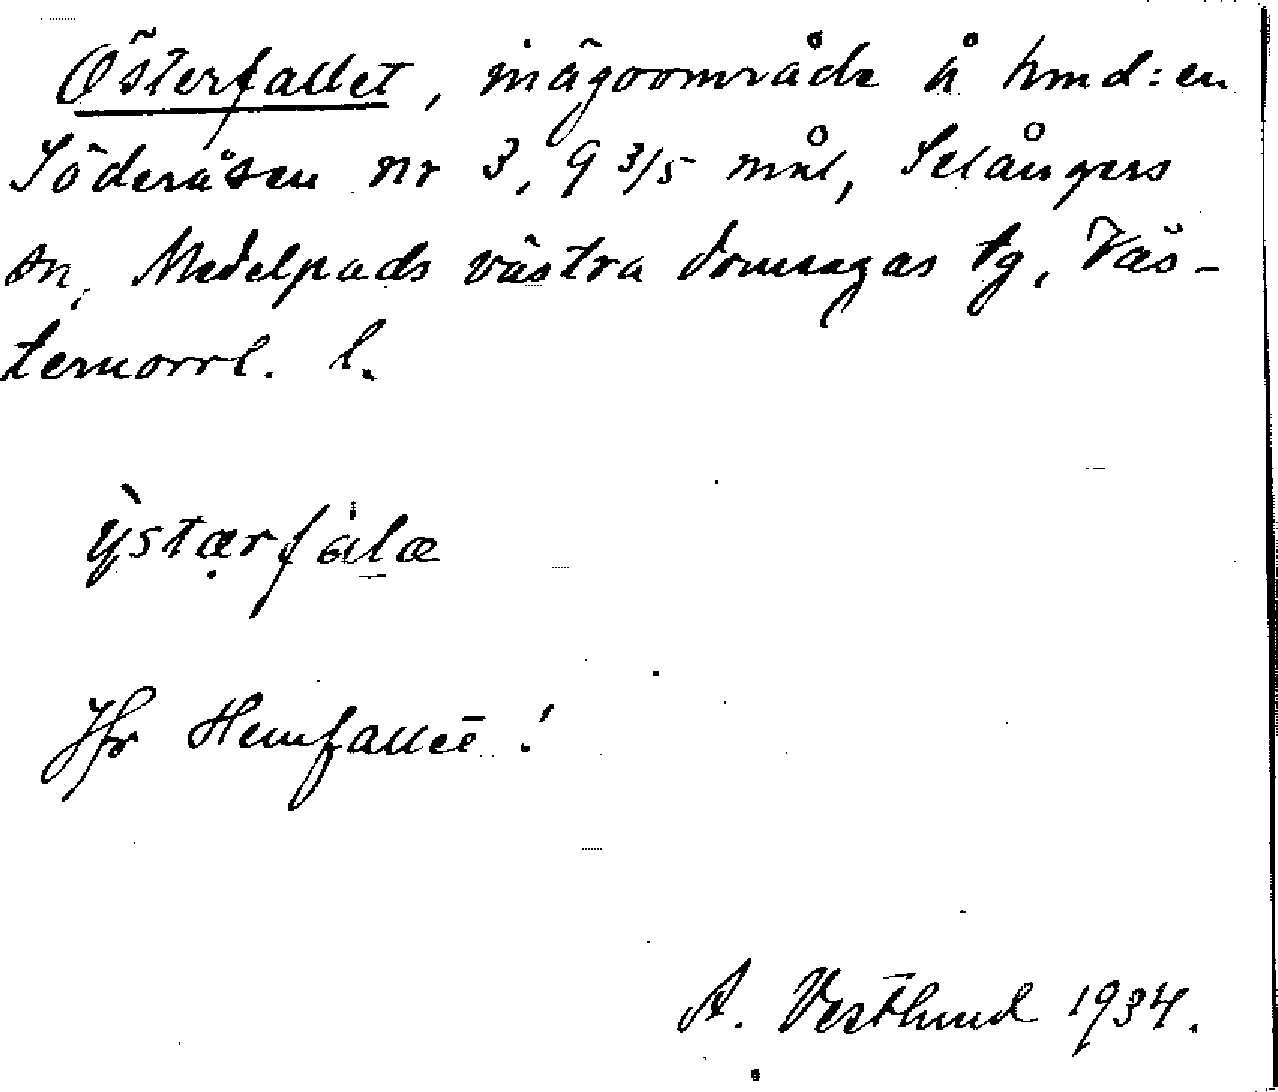 Österfallet, inägoområde å hmd:en
Söderåsen nr 3, 9 3/5 mål, Selångers
sn, Medelpads västra domsagas tg, Väs-
ternorrl. l.
ỳstærfàlæ
Jfr Hemfallet!
A. Vestlund 1934.